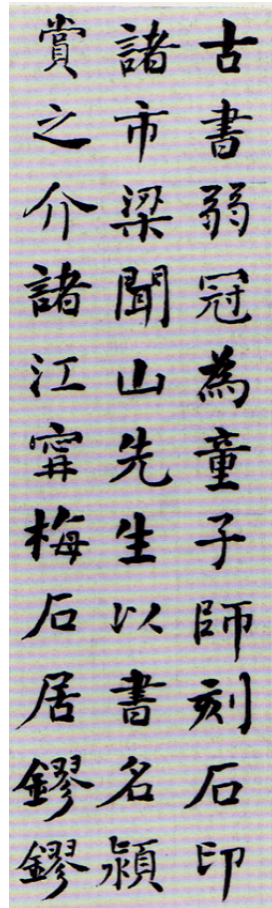 古書弱冠為童子師刻石印
諸市梁聞山先生以書名潁
賞之介諸江寗梅石居鏐鏐